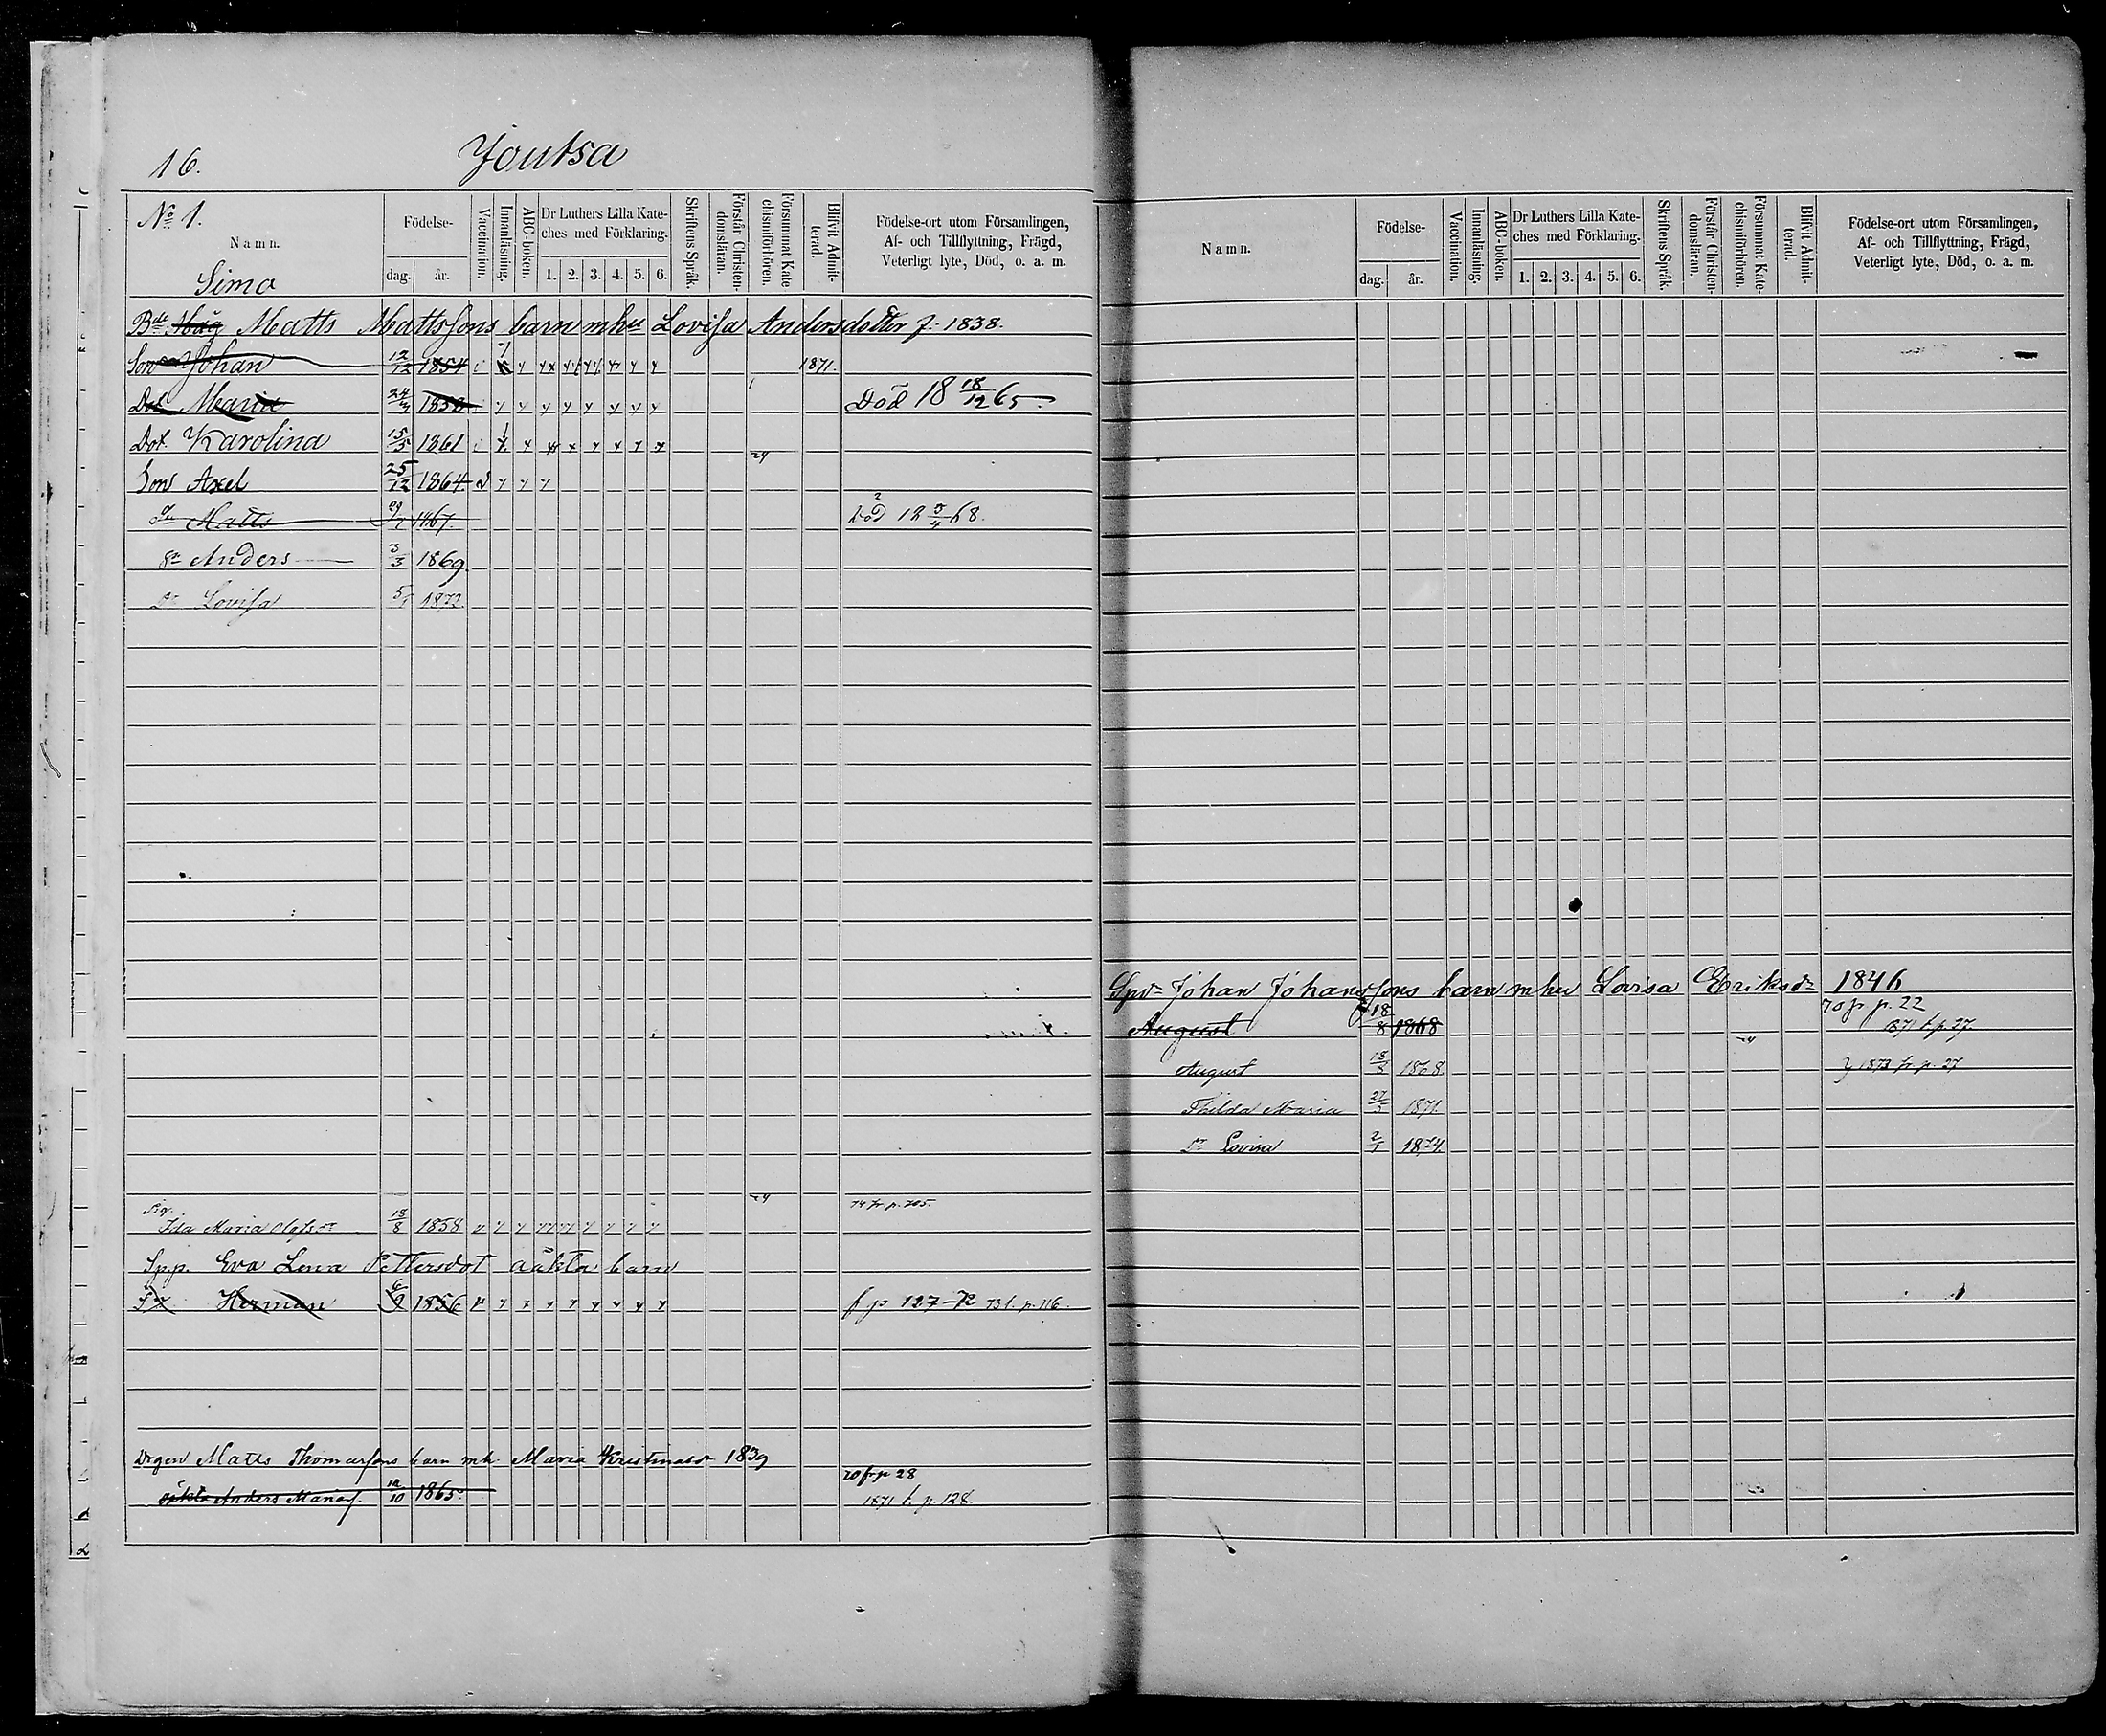 16.
Joutsa
No 1.
Namn.
Födelse-
dag.
år.
Vaccination.
Innanläsning.
ABC-boken.
Dr Luthers Lilla Kate-
ches med Förklaring.
1. 2. 3. 4. 5. 6.
Skriftens Språk.
Förstår Christen-
domsläran.
Försummat Kate
chismiförhören.
Blifvit Admit-
terad.
Födelse-ort utom Församlingen,
Af- och Tillflyttning, Frägd,
Veterligt lyte, Död, o. a. m.
Simo
Bde Måg Matts Mattssons barn mhu Lovisa Andersdotter f. 1838.
Son Johan 12/12 1854 1871.
Dot Maria 24/3 1858 Död 18 18/12 65.
Dot. Karolina 15/3 1861
Son Axel 25/12 1864
Matts 1867. död 12 68.
Sn Anders 3/3 1869.
Dr Lovisa 1872.
Pig.
Ida Maria Olofsdr 18/8 1858 74 fr p. 705.
Sp.p. Eva Lena Pettersdot oäkta barn
Sn Herman 6/9 1856 f p 127-72 73 t. p. 116.
Drgen Matts Thomassons barn mh. Maria Kristinasdr 1839
oäkta Anders Marias. 12/10 1865. 70 fr p 28
1871 t. p. 128.
Namn.
Födelse-
dag.
år.
Vaccination.
Innanläsning.
ABC-boken.
Dr Luthers Lilla Kate-
ches med Förklaring.
1. 2. 3. 4. 5. 6.
Skriftens Språk.
Förstår Christen-
domsläran.
Försummat Kate-
chismiförhören.
Blifvit Admit-
terad.
Födelse-ort utom Församlingen,
Af- och Tillflyttning, Frägd,
Veterligt lyte, Död, o. a. m.
Spv Johan Johanssons barn mhu Lovisa Eriksdr 1846
70 fr p. 22
August 18/8 1868 1871 t p. 27.
August 18/8 1868. 1873 fr p. 27
Thilda Maria 27/3 1871.
Dr Lovisa 2/1 1874.